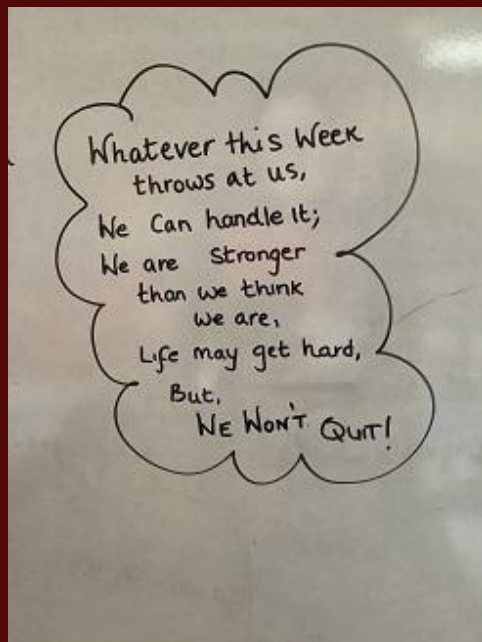 Whatever this Week
throws at us,
We Can handle it;
We are stronger
than we think
we are,
Life may get hard,
But,
WE WON'T QUIT!